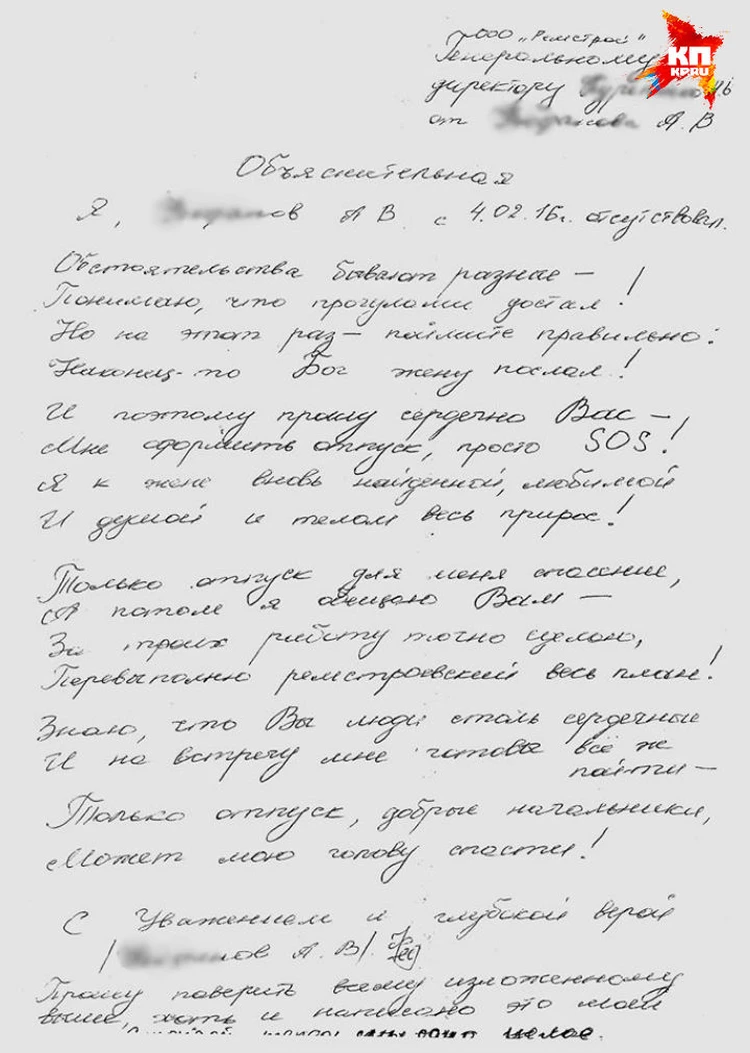 ООО "Ремстрой"
Генеральному
КП
KP.RU
директору
от А. В
Объяснительная
Я, ов А В. с 4.02.16г. отсутствовал.
Обстоятельства бывают разные —
Понимаю, что прогулами достал!
Но на этот раз — поймите правильно:
Наконец-то Бог жену послал!
И поэтому прошу сердечно Вас —
Мне оформить отпуск, просто SOS!
Я к жене вновь найденной, любимой
И душой и телом весь прирос!
Только отпуск для меня спасение,
А потом я обещаю Вам —
За троих работу точно сделаю,
Перевыполню ремстроевский весь план!
Знаю, что Вы люди столь сердечные
И на встречу мне готовы всё ж
пойти —
Только отпуск, добрые начальники,
Может мою голову спасти!
С Уважением и глубокой верой
/ нов А. В/.
Прошу поверить всему изложенному
выше, хоть и написано это моей
целое.